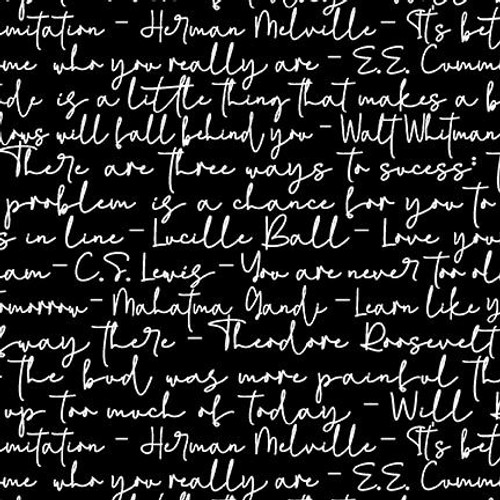 imitation - Herman Melville - It's bet
ome who you really are - E.E. Cumm
de is a little thing that makes a b
dows will fall behind you - Walt Whitman
There are three ways to sucess: T
problem is a chance for you to
s in line - Lucille Ball - Love you
am - C.S. Lewis - You are never too ol
omorrow - Mahatma Gandi - Learn like y
fway there - Theodore Roosevelt
- The bud was more painful th
up too much of today - Will R
imitation - Herman Melville - It's bet
ome who you really are - E.E. Cumm